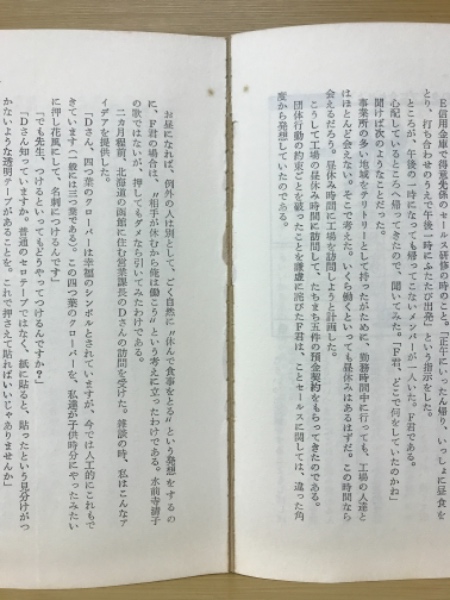 E信用金庫で得意先係のセールス研修の時のこと。「正午にいったん帰り、いっしょに昼食を
とり、打ち合わせのうえで午後一時にふたたび出発」という指示をした。
ところが、午後の一時になっても帰ってこないメンバーが一人いた。F君である。
心配しているところへ帰ってきたので、聞いてみた。「F君、どこで何をしていたのかね」
聞けば次のようなことだった。
事業所の多い地域をテリトリーとして持ったがために、勤務時間中に行っても、工場の人達と
はほとんど会えない。そこで考えた。いくら働くといっても昼休みはあるはずだ。この時間なら
会えるだろう。昼休み時間に工場を訪問しようと計画した。
こうして工場の昼休み時間に訪問して、たちまち五件の預金契約をもらってきたのである。
団体行動の約束ごとを破ったことを謙虚に詫びたF君は、ことセールスに関しては、違った角
度から発想していたのである。
お昼になれば、例外の人は別として、ごく自然に〝休んで食事をとる〟という発想をするの
に、F君の場合は、〝相手が休むから俺は働こう〟という考えに立ったわけである。水前寺清子
の歌ではないが、押してもダメなら引いてみたわけである。
二カ月程前、北海道の函館に住む営業課長のDさんの訪問を受けた。雑談の時、私はこんなア
イデアを提供した。
「Dさん、四つ葉のクローバーは幸福のシンボルとされていますが、今では人工的にこれもで
きています(一般には三つ葉である)。この四つ葉のクローバーを、私達が子供時分にやったみたい
に押し花風にして、名刺につけるんです」
「でも先生、つけるといってもどうやってつけるんですか?」
「Dさん知っていますか。普通のセロテープではなく、紙に貼ると、貼ったという見分けがつ
かないような透明テープがあることを。これで押さえて貼ればいいじゃありませんか」